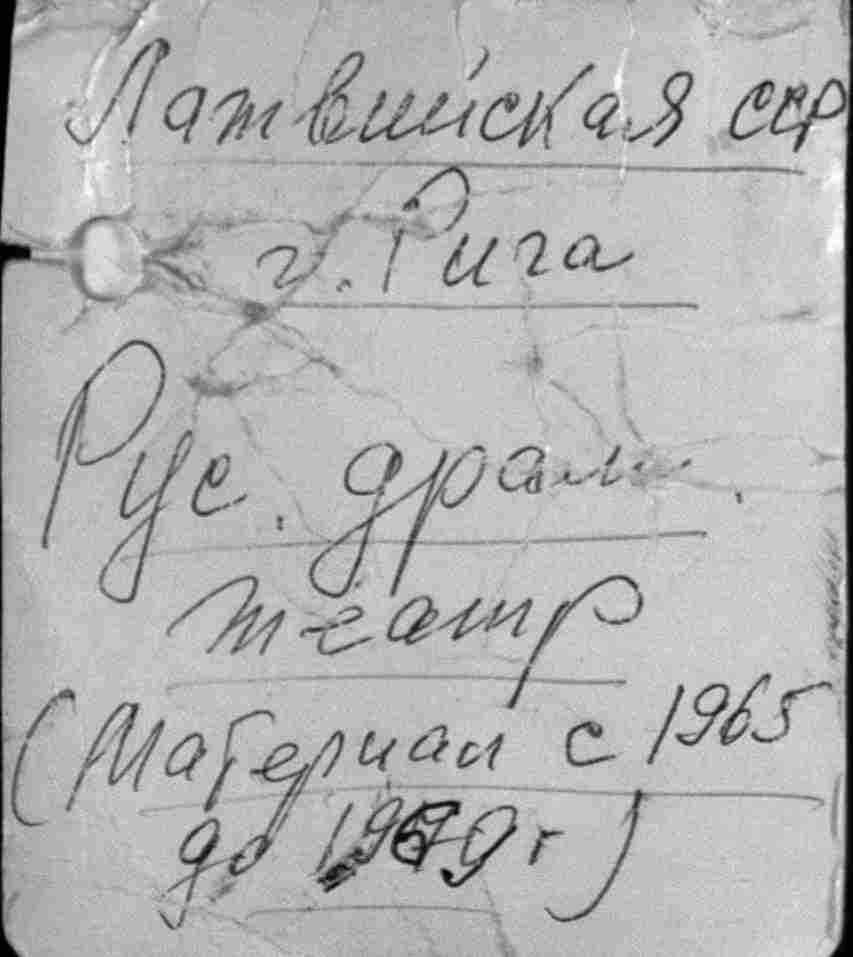 Латвийская ССР
г. Рига
Рус. драм.
театр
(Материал с 1965
до г)